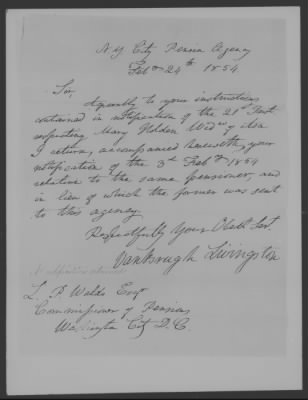 N Y City Pension Agency
Feb 24th 1854
Sir,
Agreeably to your instructions
contained in notification of the 21st Inst
respecting Mary Holden Widw of
I return, accompanied herewith, your
notification of the 3rd Feby 1854
relative to the same pensioner, and
in lieu of which the former was sent
to this agency
Respectfully Your Obedt Svt.
VanBrugh Livingston
L. P. Waldo Esqr
Commissioner of Pensions
Washington City D.C.